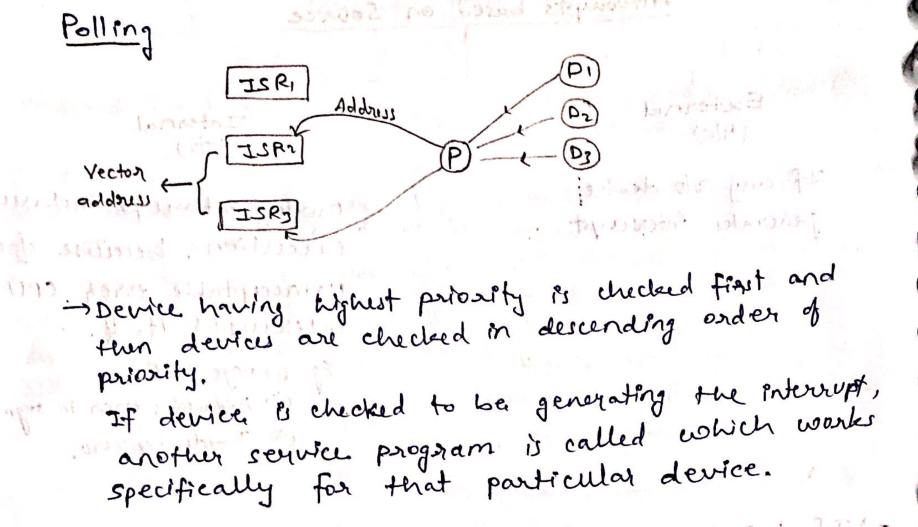 Polling
ISR1
Address
D1
D2
ISR2
P
D3
Vector
address
ISR3
→ Device having highest priority is checked first and
then devices are checked in descending order of
priority.
If device is checked to be generating the interrupt,
another service program is called which works
specifically for that particular device.